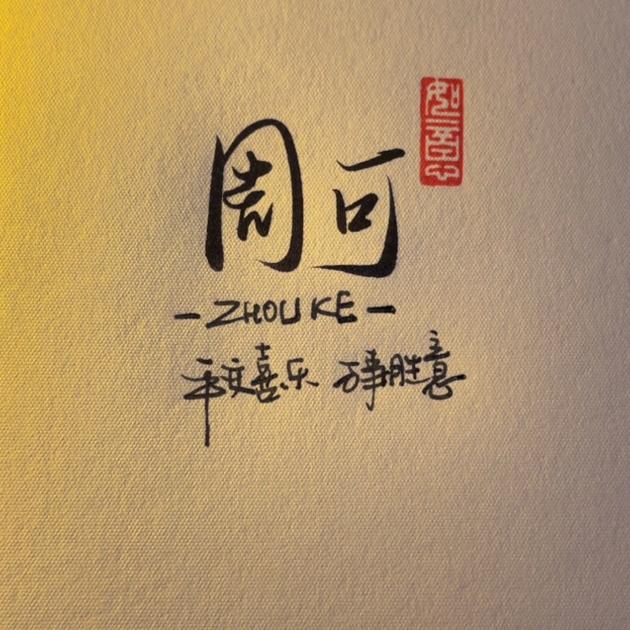 周可
如意
-ZHOU KE-
平安喜乐 万事胜意